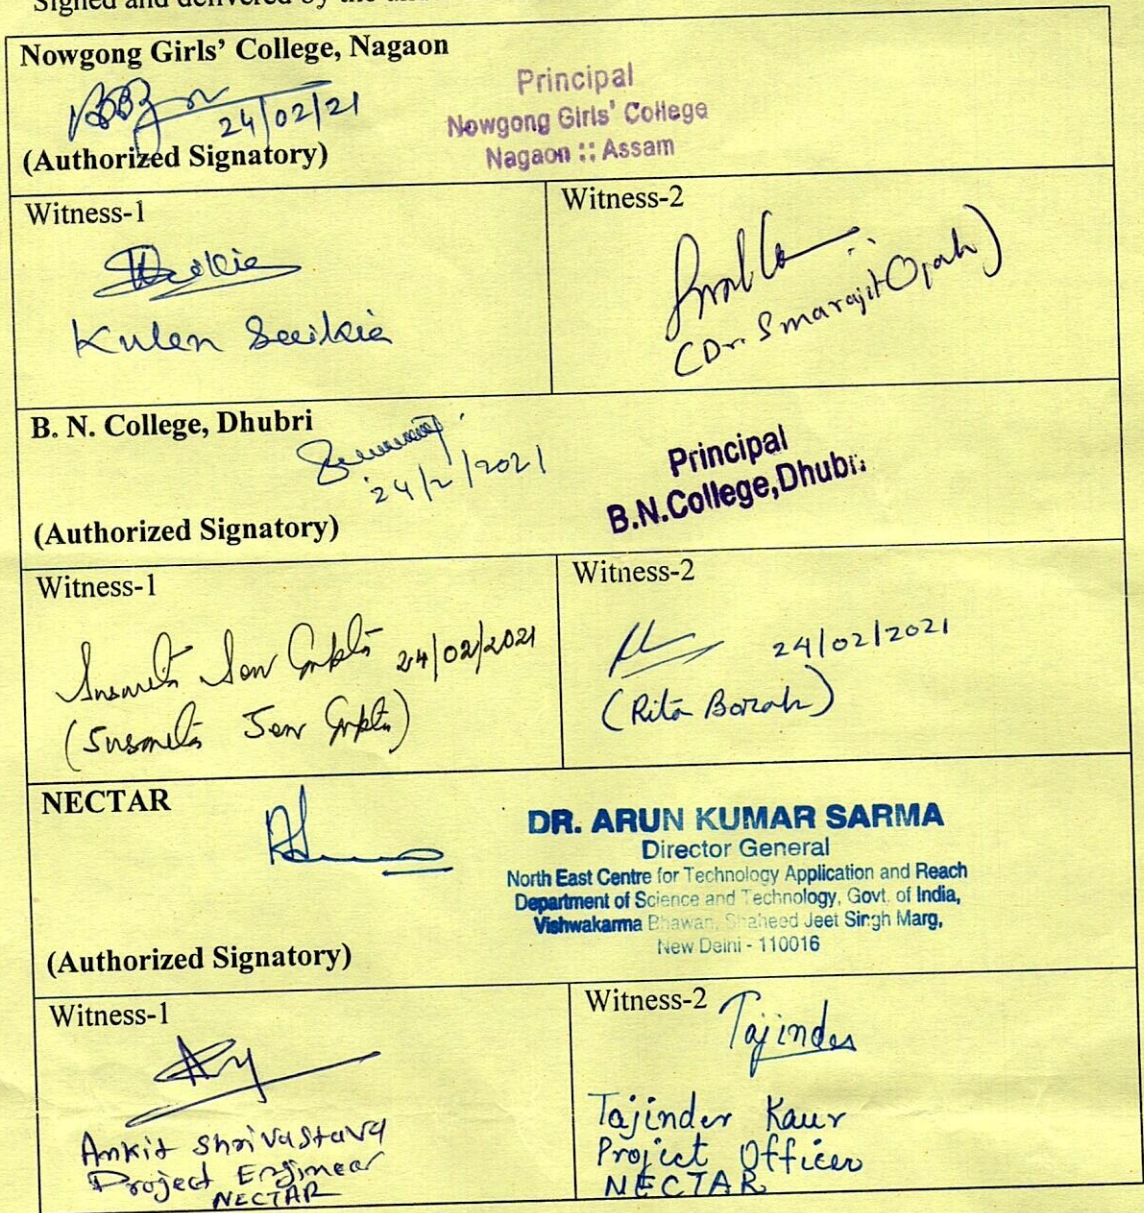 Signed and delivered by the
Nowgong Girls' College, Nagaon
24/02/21
(Authorized Signatory)
Principal
Nowgong Girls' College
Nagaon :: Assam
Witness-1
Kulen Saikia
Witness-2
(Dr. Smarajit Ojah)
B. N. College, Dhubri
24/2/2021
(Authorized Signatory)
Principal
B.N.College,Dhubri
Witness-1
Susmita Sen Gupta 24/02/2021
(Susmita Sen Gupta)
Witness-2
24/02/2021
(Rita Borah)
NECTAR
(Authorized Signatory)
DR. ARUN KUMAR SARMA
Director General
North East Centre for Technology Application and Reach
Department of Science and Technology, Govt. of India,
Vishwakarma Bhawan, Shaheed Jeet Singh Marg,
New Delhi - 110016
Witness-1
Ankit Shrivastava
Project Engineer
NECTAR
Witness-2
Tajinder
Tajinder Kaur
Project Officer
NECTAR